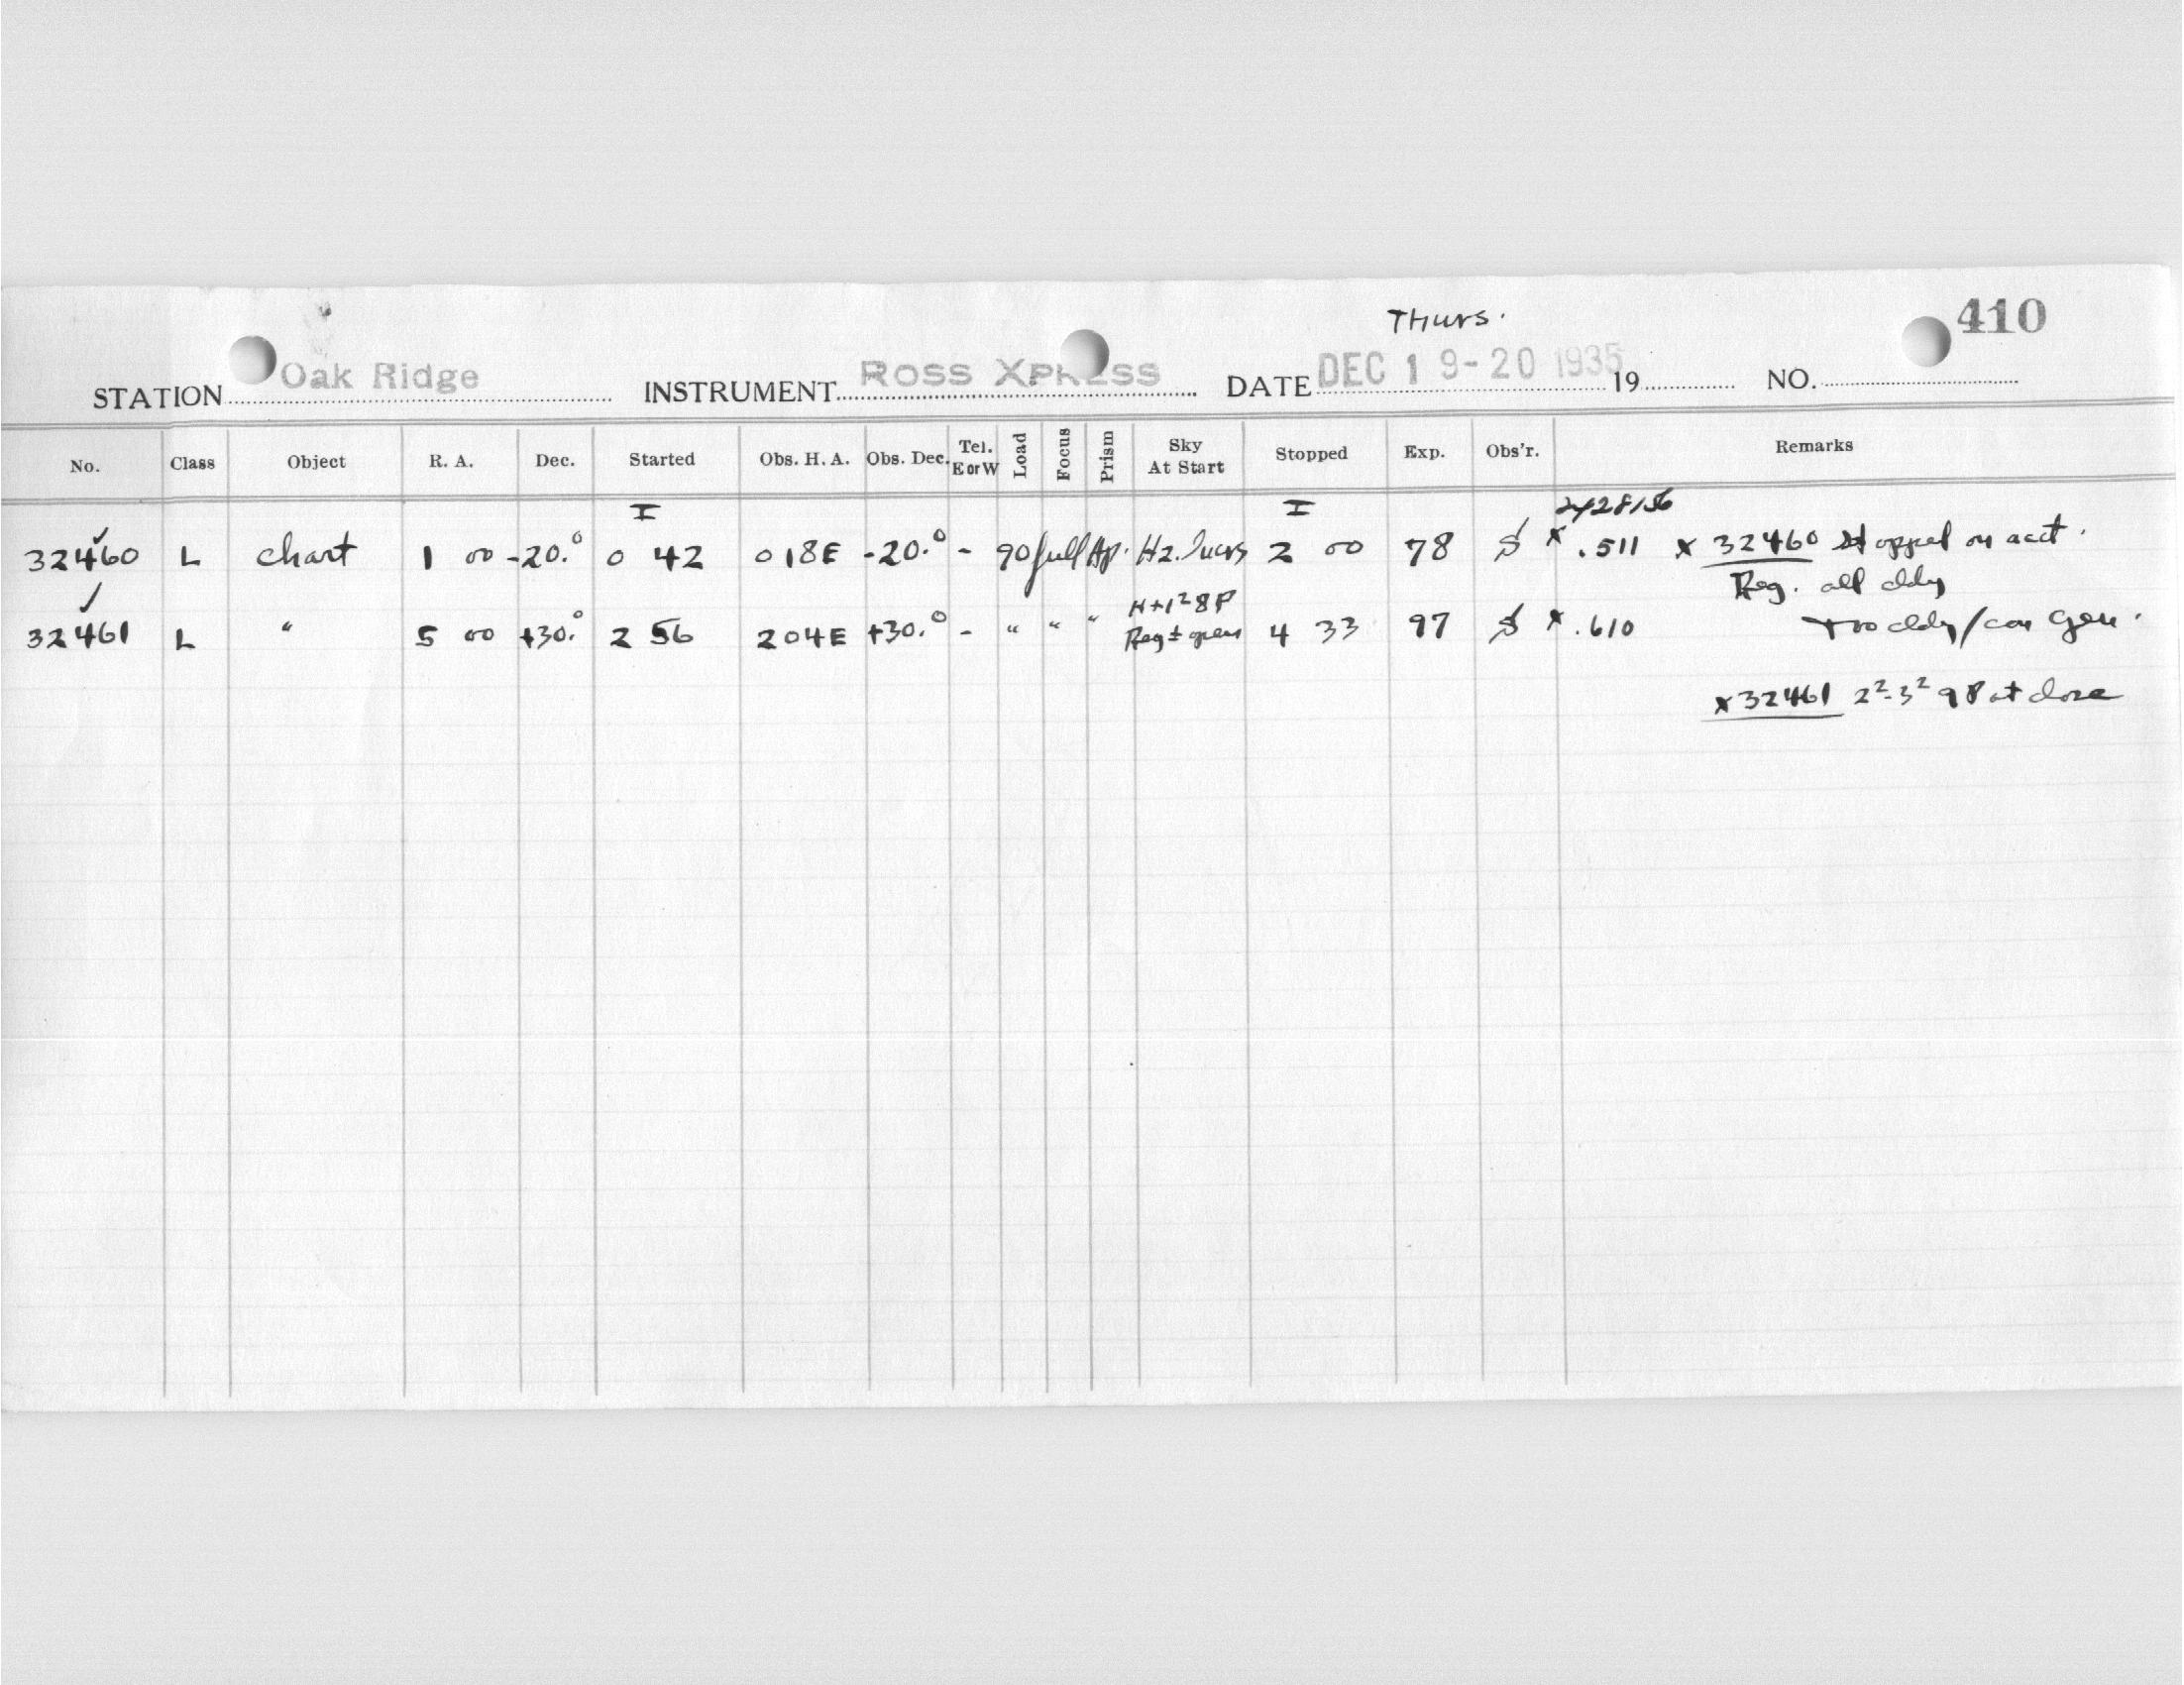 Thurs.
410
STATION Oak Ridge INSTRUMENT ROSS XPRESS DATE DEC 19-20 1935 19 NO.
No. Class Object R. A. Dec. Started Obs. H. A. Obs. Dec. Tel. E or W Load Focus Prism Sky At Start Stopped Exp. Obs'r. Remarks
I I 2428156
32460 L chart 1 00 -20.° 0 42 0 18E -20.° - 90 full Ap. Hz. 2 00 78 S x .511 x 32460 Stopped on acct.
Reg. all cldy
H+1² 8P
32461 L " 5 00 +30.° 2 56 2 04E +30.° - " " " Reg ± open 4 33 97 S x .610 too cldy/con Gen.
x 32461 2²-3² 98 at close